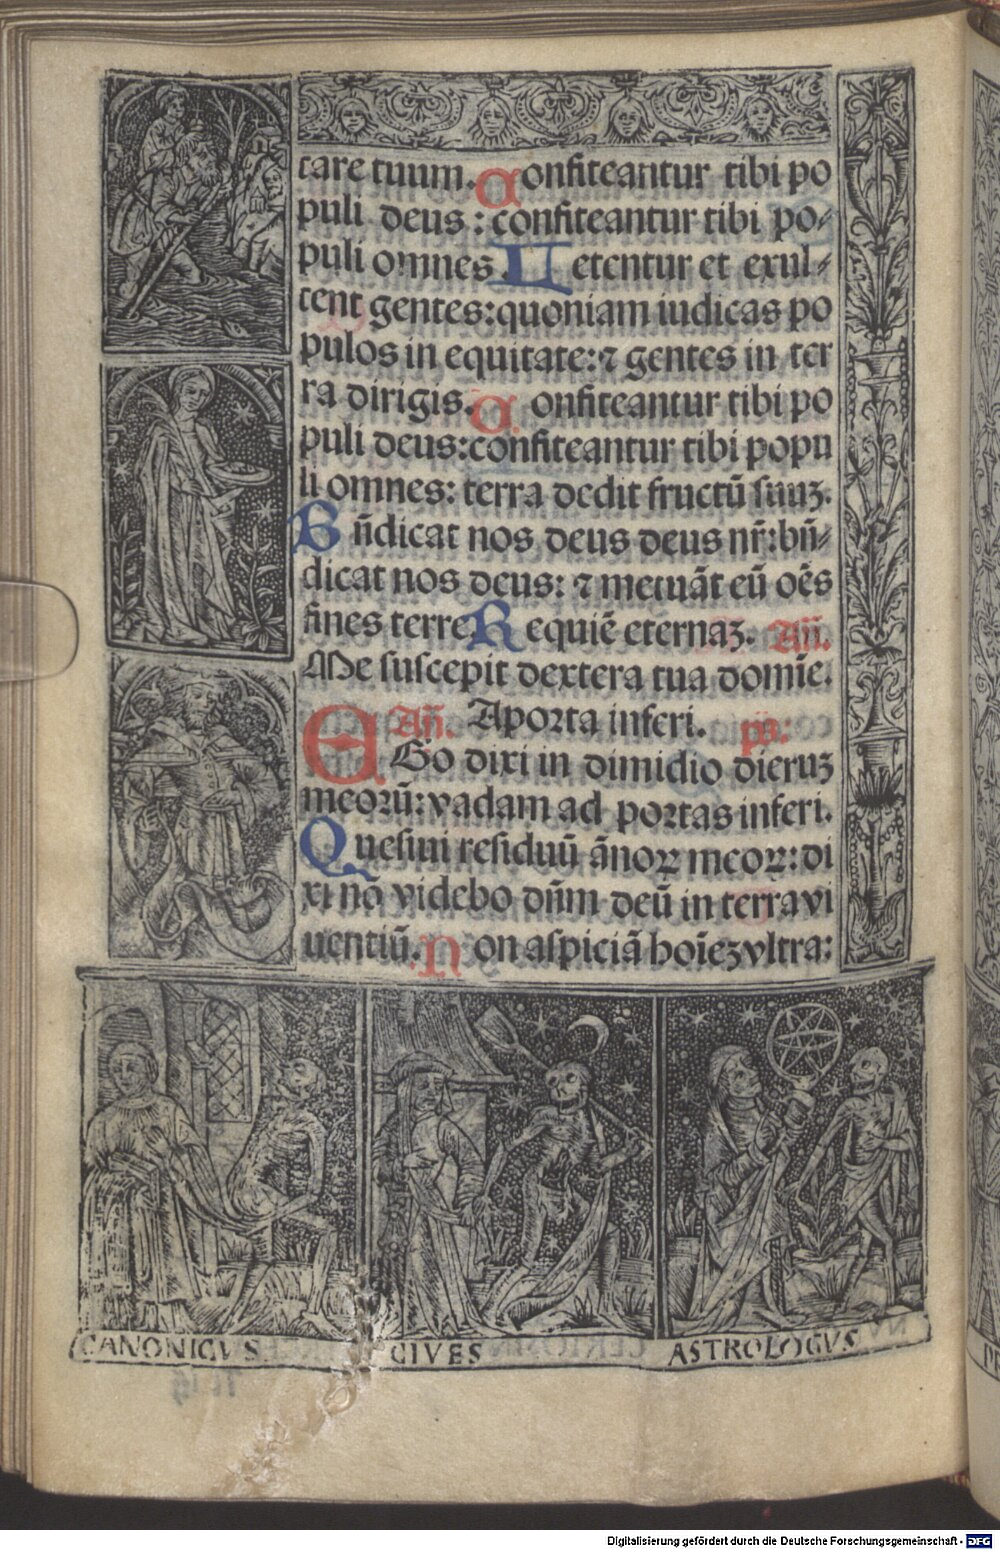 tare tuum. Confiteantur tibi po
puli deus: confiteantur tibi po-
puli omnes. Letentur et exul-
tent gentes: quoniam iudicas po
pulos in equitate: ⁊ gentes in ter
ra dirigis. Confiteantur tibi po
puli deus: confiteantur tibi popu
li omnes: terra dedit fructū suuꝫ.
Bn̄dicat nos deus deus nr̄: bn̄-
dicat nos deus: ⁊ metuāt eū oēs
fines terre. Requiē eternaꝫ. Añ.
Me suscepit dextera tua domīe.
Añ. A porta inferi. ps̄:
EGo dixi in dimidio dieruꝫ
meorū: vadam ad portas inferi.
Quesiui residuū ānoꝝ meoꝝ: di
xi nō videbo dn̄m deū in terra vi
uentiū. Non aspiciā hoīeꝫ vltra:
CANONICVS
CIVES
ASTROLOGVS
Digitalisierung gefördert durch die Deutsche Forschungsgemeinschaft - DFG